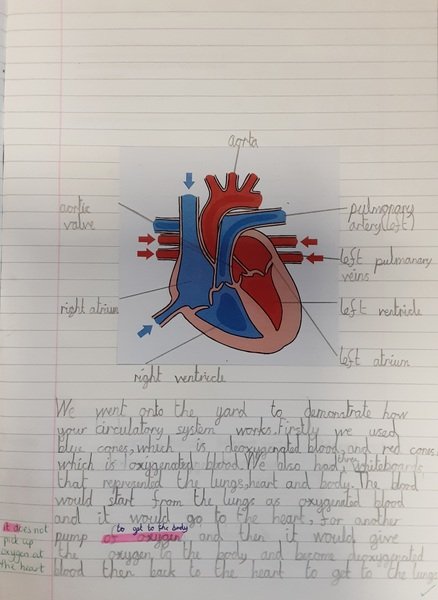 aorta
aortic
valve
pulmonary
artery(left)
left pulmanary
veins
right atrium
left ventricle
left atrium
right ventricle
We went onto the yard to demonstrate how
your circulatory system works. Firstly we used
blue cones, which is deoxygenated blood, and red cones,
which is oxygenated blood. We also had three whiteboards
that represented the lungs, heart and body. The blood
would start from the lungs as oxygenated blood
and it would go to the heart, for another
to get to the body
pump of oxygen and then it would give
the oxygen to the body and become deoxygenated
blood then back to the heart to get to the lungs
it does not
pick up
oxygen at
the heart